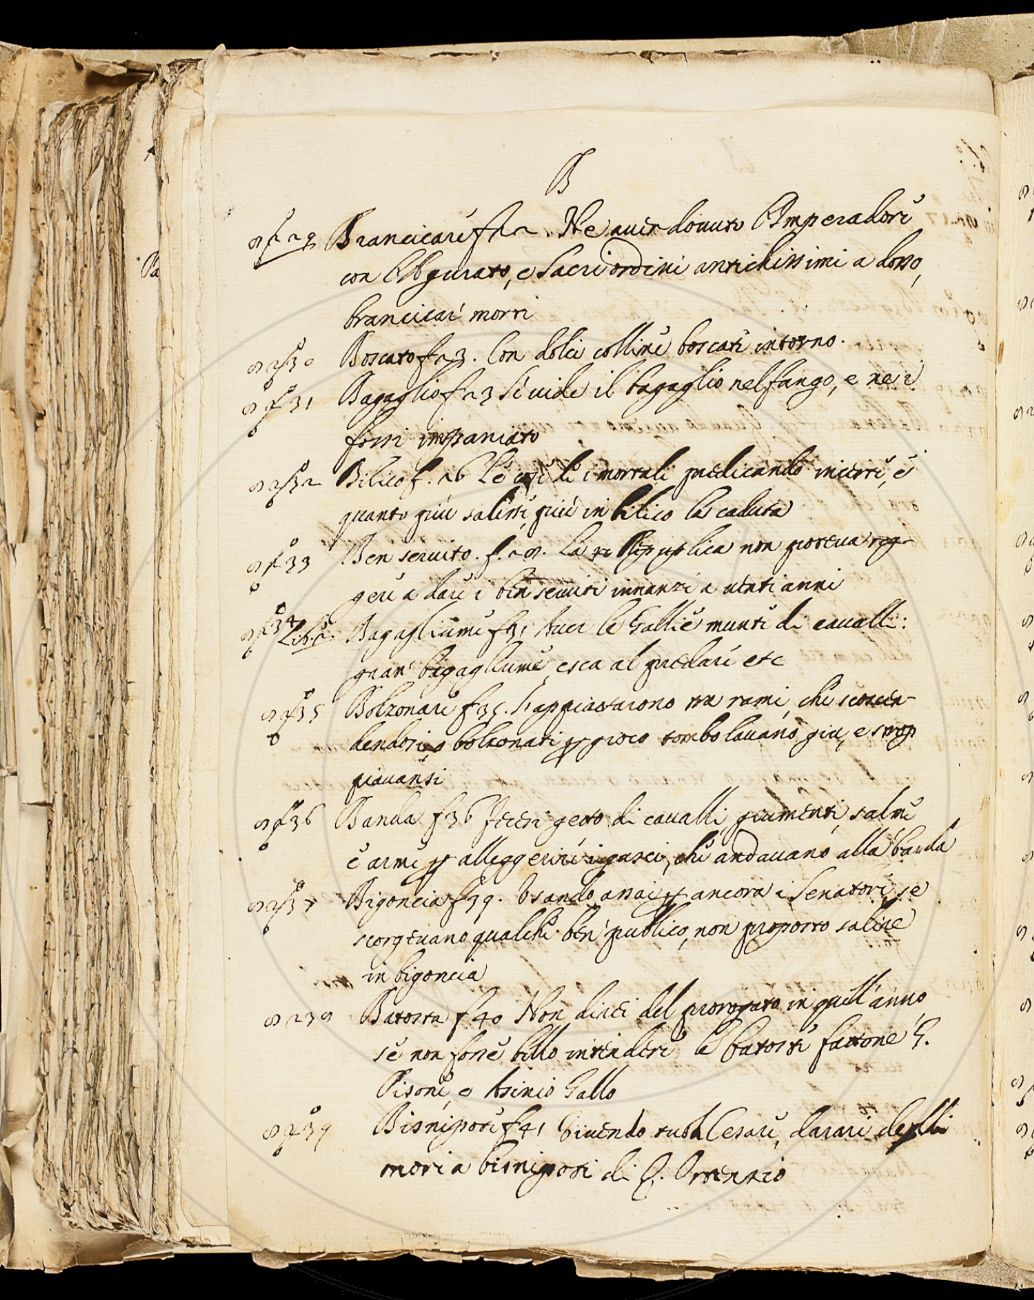 B
Brancicare f. 22. Ne aver dovuto l'Imperadore
con l'Augurato, e sacri ordini antichissimi a dosso,
brancicar morti
Boscato f 23. Con dolci colline boscate intorno.
Bagaglio f 23 Si vide il bagaglio nel fango, e ne i
fossi impaniato
Bilico f. 26 Le cose de i mortali predicando incerte, e
quanto più saliti, più in bilico la caduta
Ben servito. f. 29. La Republica non poteva reg-
gere a dare i ben serviti innanzi a venti anni
Lib. 2. Bagagliume f 31 Aver le Gallie munte di cavalli:
gran bagagliume, esca al predare etc
Bolzonare f 35. S'appiastarono tra rami, che scoscen-
dendosi, o bolzonati per gioco tombolavano giù, e strop
piavansi
Barda f 36 Fecesi getto di cavalli, giumenti, salme
e armi per alleggerire i gusci, che andavano alla barda
Bigoncia f 39. Usando assai per ancora i Senatori, se
scorgevano qualche ben publico, non proposto salire
in bigoncia
Batosta f 40 Non direi del prorogato in quell'anno
se non fosse bello intendere le batoste fattone G.
Pisone, e Asinio Gallo
Bisnipote f 41 Vivendo Cesare, darari
moria bisnipoti di Q. Ortensio